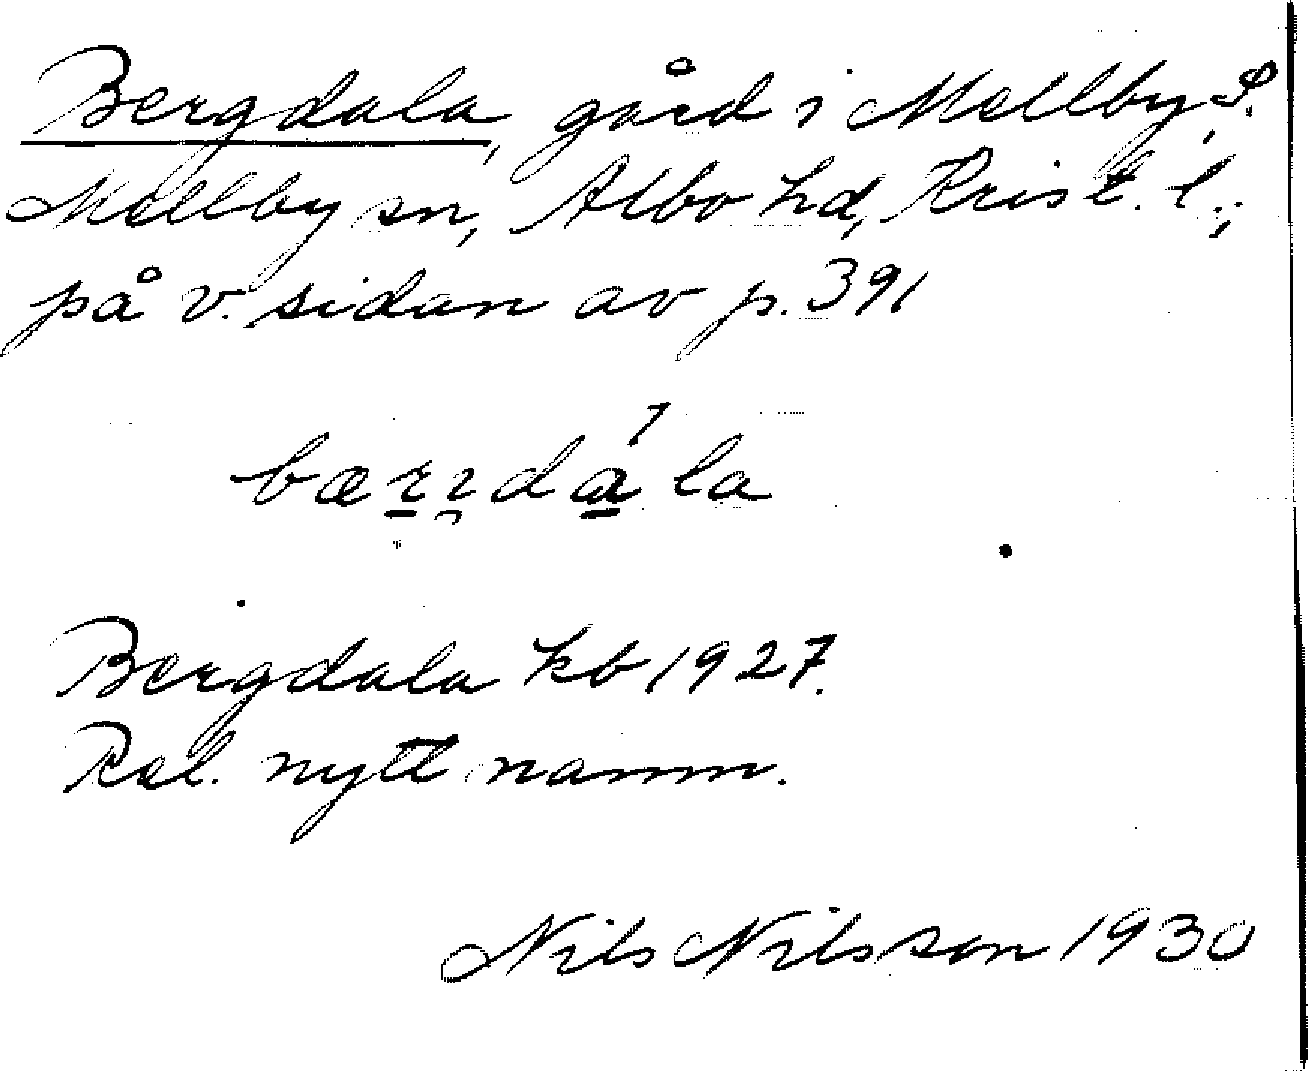 Bergdala, gård i Mellby, S.
Mellby sn, Albo hd, Krist. l.;
på v. sidan av p. 391
bærɪdála
Bergdala kb 1927.
Rel. nytt namn.
Nils Nilsson 1930